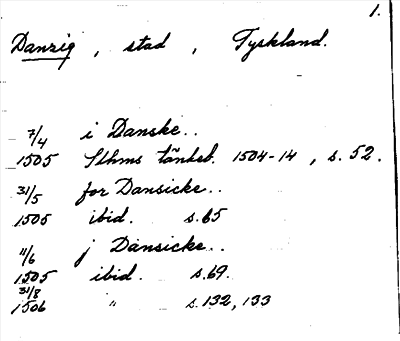 1.
Danzig, stad, Tyskland.
7/4 i Danske..
1505 Sthms tänkeb. 1504-14, s. 52.
31/5 for Dansicke..
1505 ibid. s.65
11/6 j Dansicke..
1505 ibid. s.69.
31/8
1506 " s.132, 133